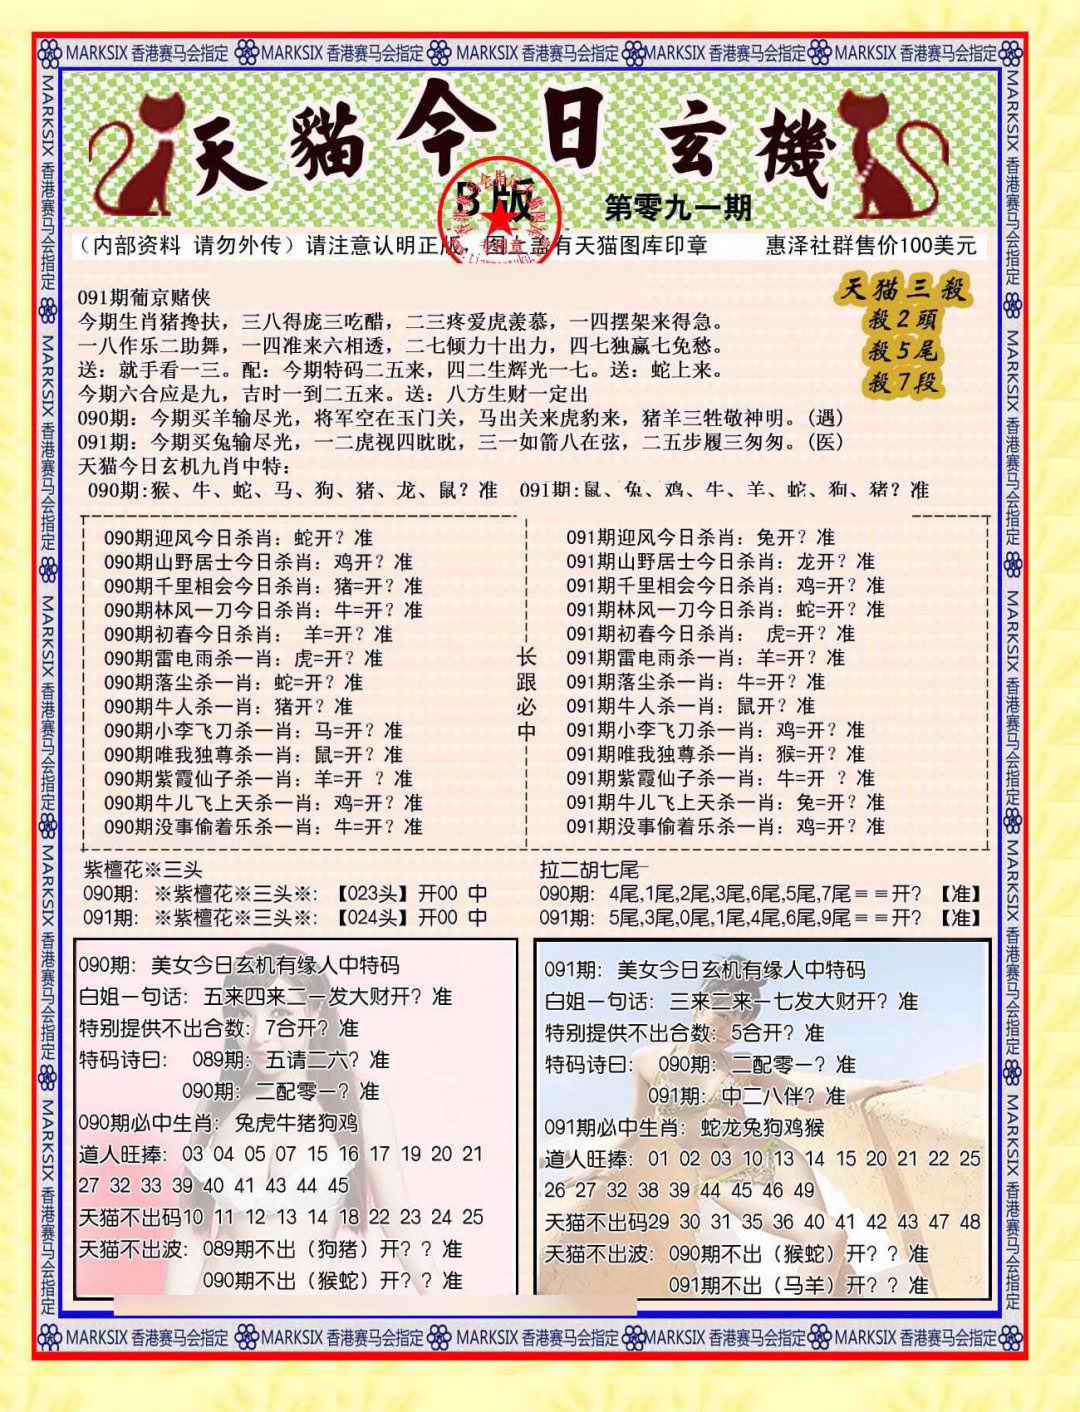 MARKSIX 香港赛马会指定 MARKSIX 香港赛马会指定 MARKSIX 香港赛马会指定 MARKSIX 香港赛马会指定 MARKSIX 香港赛马会指定
天貓今日玄機
B版
第零九一期
（内部资料 请勿外传）请注意认明正版，图上盖有天猫图库印章 惠泽社群售价100美元
天猫三殺
殺2頭
殺5尾
殺7段
091期葡京赌侠
今期生肖猪搀扶，三八得庞三吃醋，二三疼爱虎羡慕，一四摆架来得急。
一八作乐二助舞，一四准来六相透，二七倾力十出力，四七独赢七免愁。
送：就手看一三。配：今期特码二五来，四二生辉光一七。送：蛇上来。
今期六合应是九，吉时一到二五来。送：八方生财一定出
090期：今期买羊输尽光，将军空在玉门关，马出关来虎豹来，猪羊三牲敬神明。(遇)
091期：今期买兔输尽光，一二虎视四眈眈，三一如箭八在弦，二五步履三匆匆。(医)
天猫今日玄机九肖中特：
090期:猴、牛、蛇、马、狗、猪、龙、鼠？准 091期:鼠、兔、鸡、牛、羊、蛇、狗、猪？准
090期迎风今日杀肖：蛇开？准
090期山野居士今日杀肖：鸡开？准
090期千里相会今日杀肖：猪=开？准
090期林风一刀今日杀肖：牛=开？准
090期初春今日杀肖： 羊=开？准
090期雷电雨杀一肖：虎=开？准
090期落尘杀一肖：蛇=开？准
090期牛人杀一肖：猪开？准
090期小李飞刀杀一肖：马=开？准
090期唯我独尊杀一肖：鼠=开？准
090期紫霞仙子杀一肖：羊=开 ？准
090期牛儿飞上天杀一肖：鸡=开？准
090期没事偷着乐杀一肖：牛=开？准
长
跟
必
中
091期迎风今日杀肖：兔开？准
091期山野居士今日杀肖：龙开？准
091期千里相会今日杀肖：鸡=开？准
091期林风一刀今日杀肖：蛇=开？准
091期初春今日杀肖： 虎=开？准
091期雷电雨杀一肖：羊=开？准
091期落尘杀一肖：牛=开？准
091期牛人杀一肖：鼠开？准
091期小李飞刀杀一肖：鸡=开？准
091期唯我独尊杀一肖：猴=开？准
091期紫霞仙子杀一肖：牛=开 ？准
091期牛儿飞上天杀一肖：兔=开？准
091期没事偷着乐杀一肖：鸡=开？准
紫檀花※三头
090期：※紫檀花※三头※：【023头】开00 中
091期：※紫檀花※三头※：【024头】开00 中
拉二胡七尾
090期：4尾,1尾,2尾,3尾,6尾,5尾,7尾＝＝开？【准】
091期：5尾,3尾,0尾,1尾,4尾,6尾,9尾＝＝开？【准】
090期：美女今日玄机有缘人中特码
白姐一句话：五来四来二一发大财开？准
特别提供不出合数：7合开？准
特码诗曰： 089期：五请二六？准
090期：二配零一？准
090期必中生肖：兔虎牛猪狗鸡
道人旺捧：03 04 05 07 15 16 17 19 20 21
27 32 33 39 40 41 43 44 45
天猫不出码10 11 12 13 14 18 22 23 24 25
天猫不出波：089期不出（狗猪）开？？准
090期不出（猴蛇）开？？准
091期：美女今日玄机有缘人中特码
白姐一句话：三来二来一七发大财开？准
特别提供不出合数：5合开？准
特码诗曰： 090期：二配零一？准
091期：中二八伴？准
091期必中生肖：蛇龙兔狗鸡猴
道人旺捧：01 02 03 10 13 14 15 20 21 22 25
26 27 32 38 39 44 45 46 49
天猫不出码29 30 31 35 36 40 41 42 43 47 48
天猫不出波：090期不出（猴蛇）开？？准
091期不出（马羊）开？？准
MARKSIX 香港赛马会指定 MARKSIX 香港赛马会指定 MARKSIX 香港赛马会指定 MARKSIX 香港赛马会指定 MARKSIX 香港赛马会指定
MARKSIX 香港赛马会指定 MARKSIX 香港赛马会指定 MARKSIX 香港赛马会指定 MARKSIX 香港赛马会指定 MARKSIX 香港赛马会指定
MARKSIX 香港赛马会指定 MARKSIX 香港赛马会指定 MARKSIX 香港赛马会指定 MARKSIX 香港赛马会指定 MARKSIX 香港赛马会指定